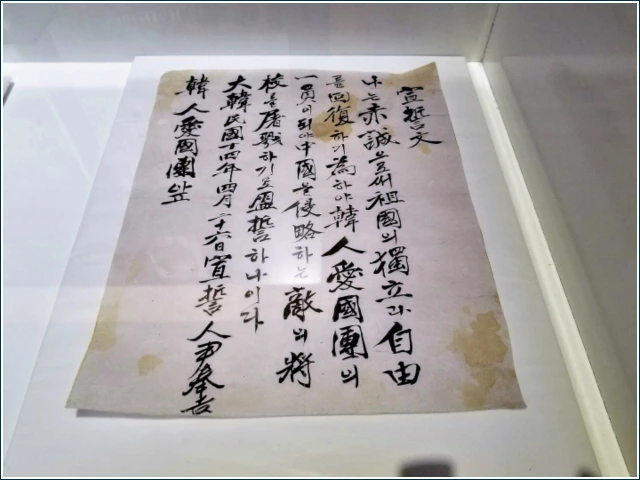 宣誓文
나는赤誠으로써祖國의獨立과自由
를回復하기爲하야韓人愛國團의
一員이되야中國을侵略하는敵의將
校를屠戮하기로盟誓하나이다
大韓民國十四年四月二十六日宣誓人尹奉吉
韓人愛國團앞